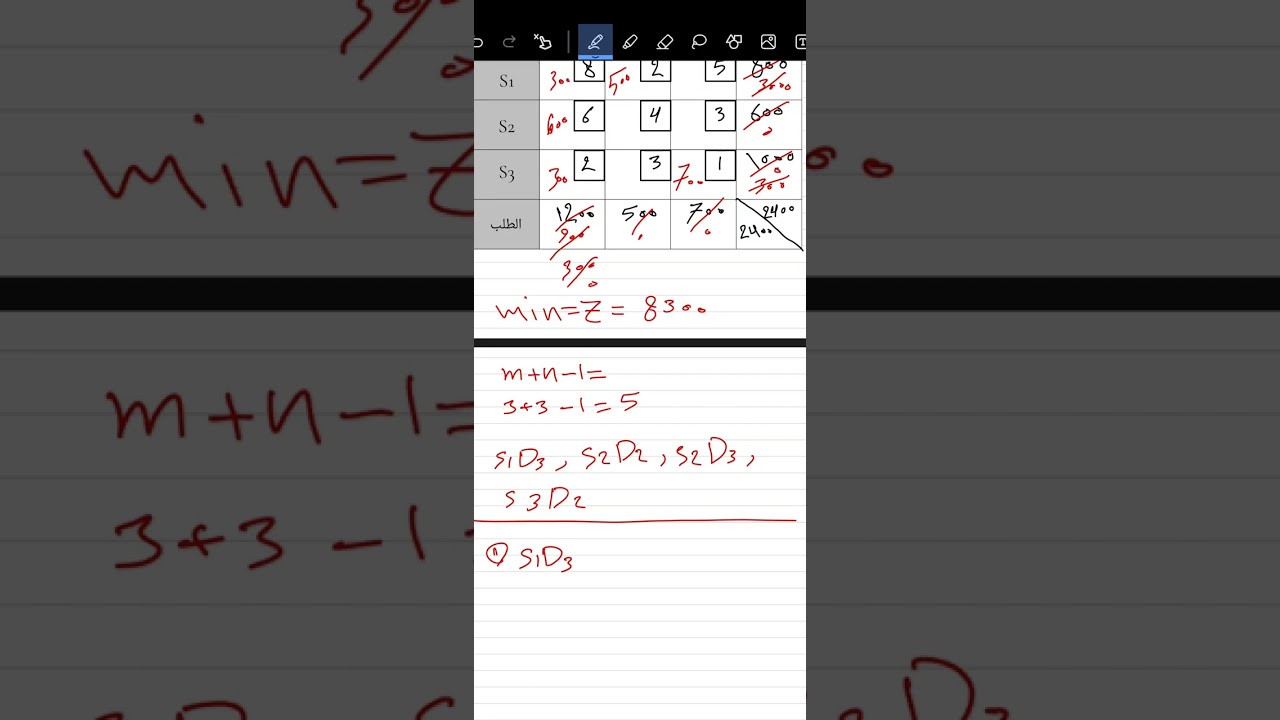 S1 300 8 500 2 5 800 3000
S2 600 6 4 3 600 0
S3 300 2 3 700 1 1000 0 300
الطلب 1200 900 300 0 500 0 700 0 2400 2400
min=Z = 8300
m+n-1=
3+3-1=5
S1D3, S2D2, S2D3,
S3D2
① S1D3
min=Z
m+n-1=
3+3-1